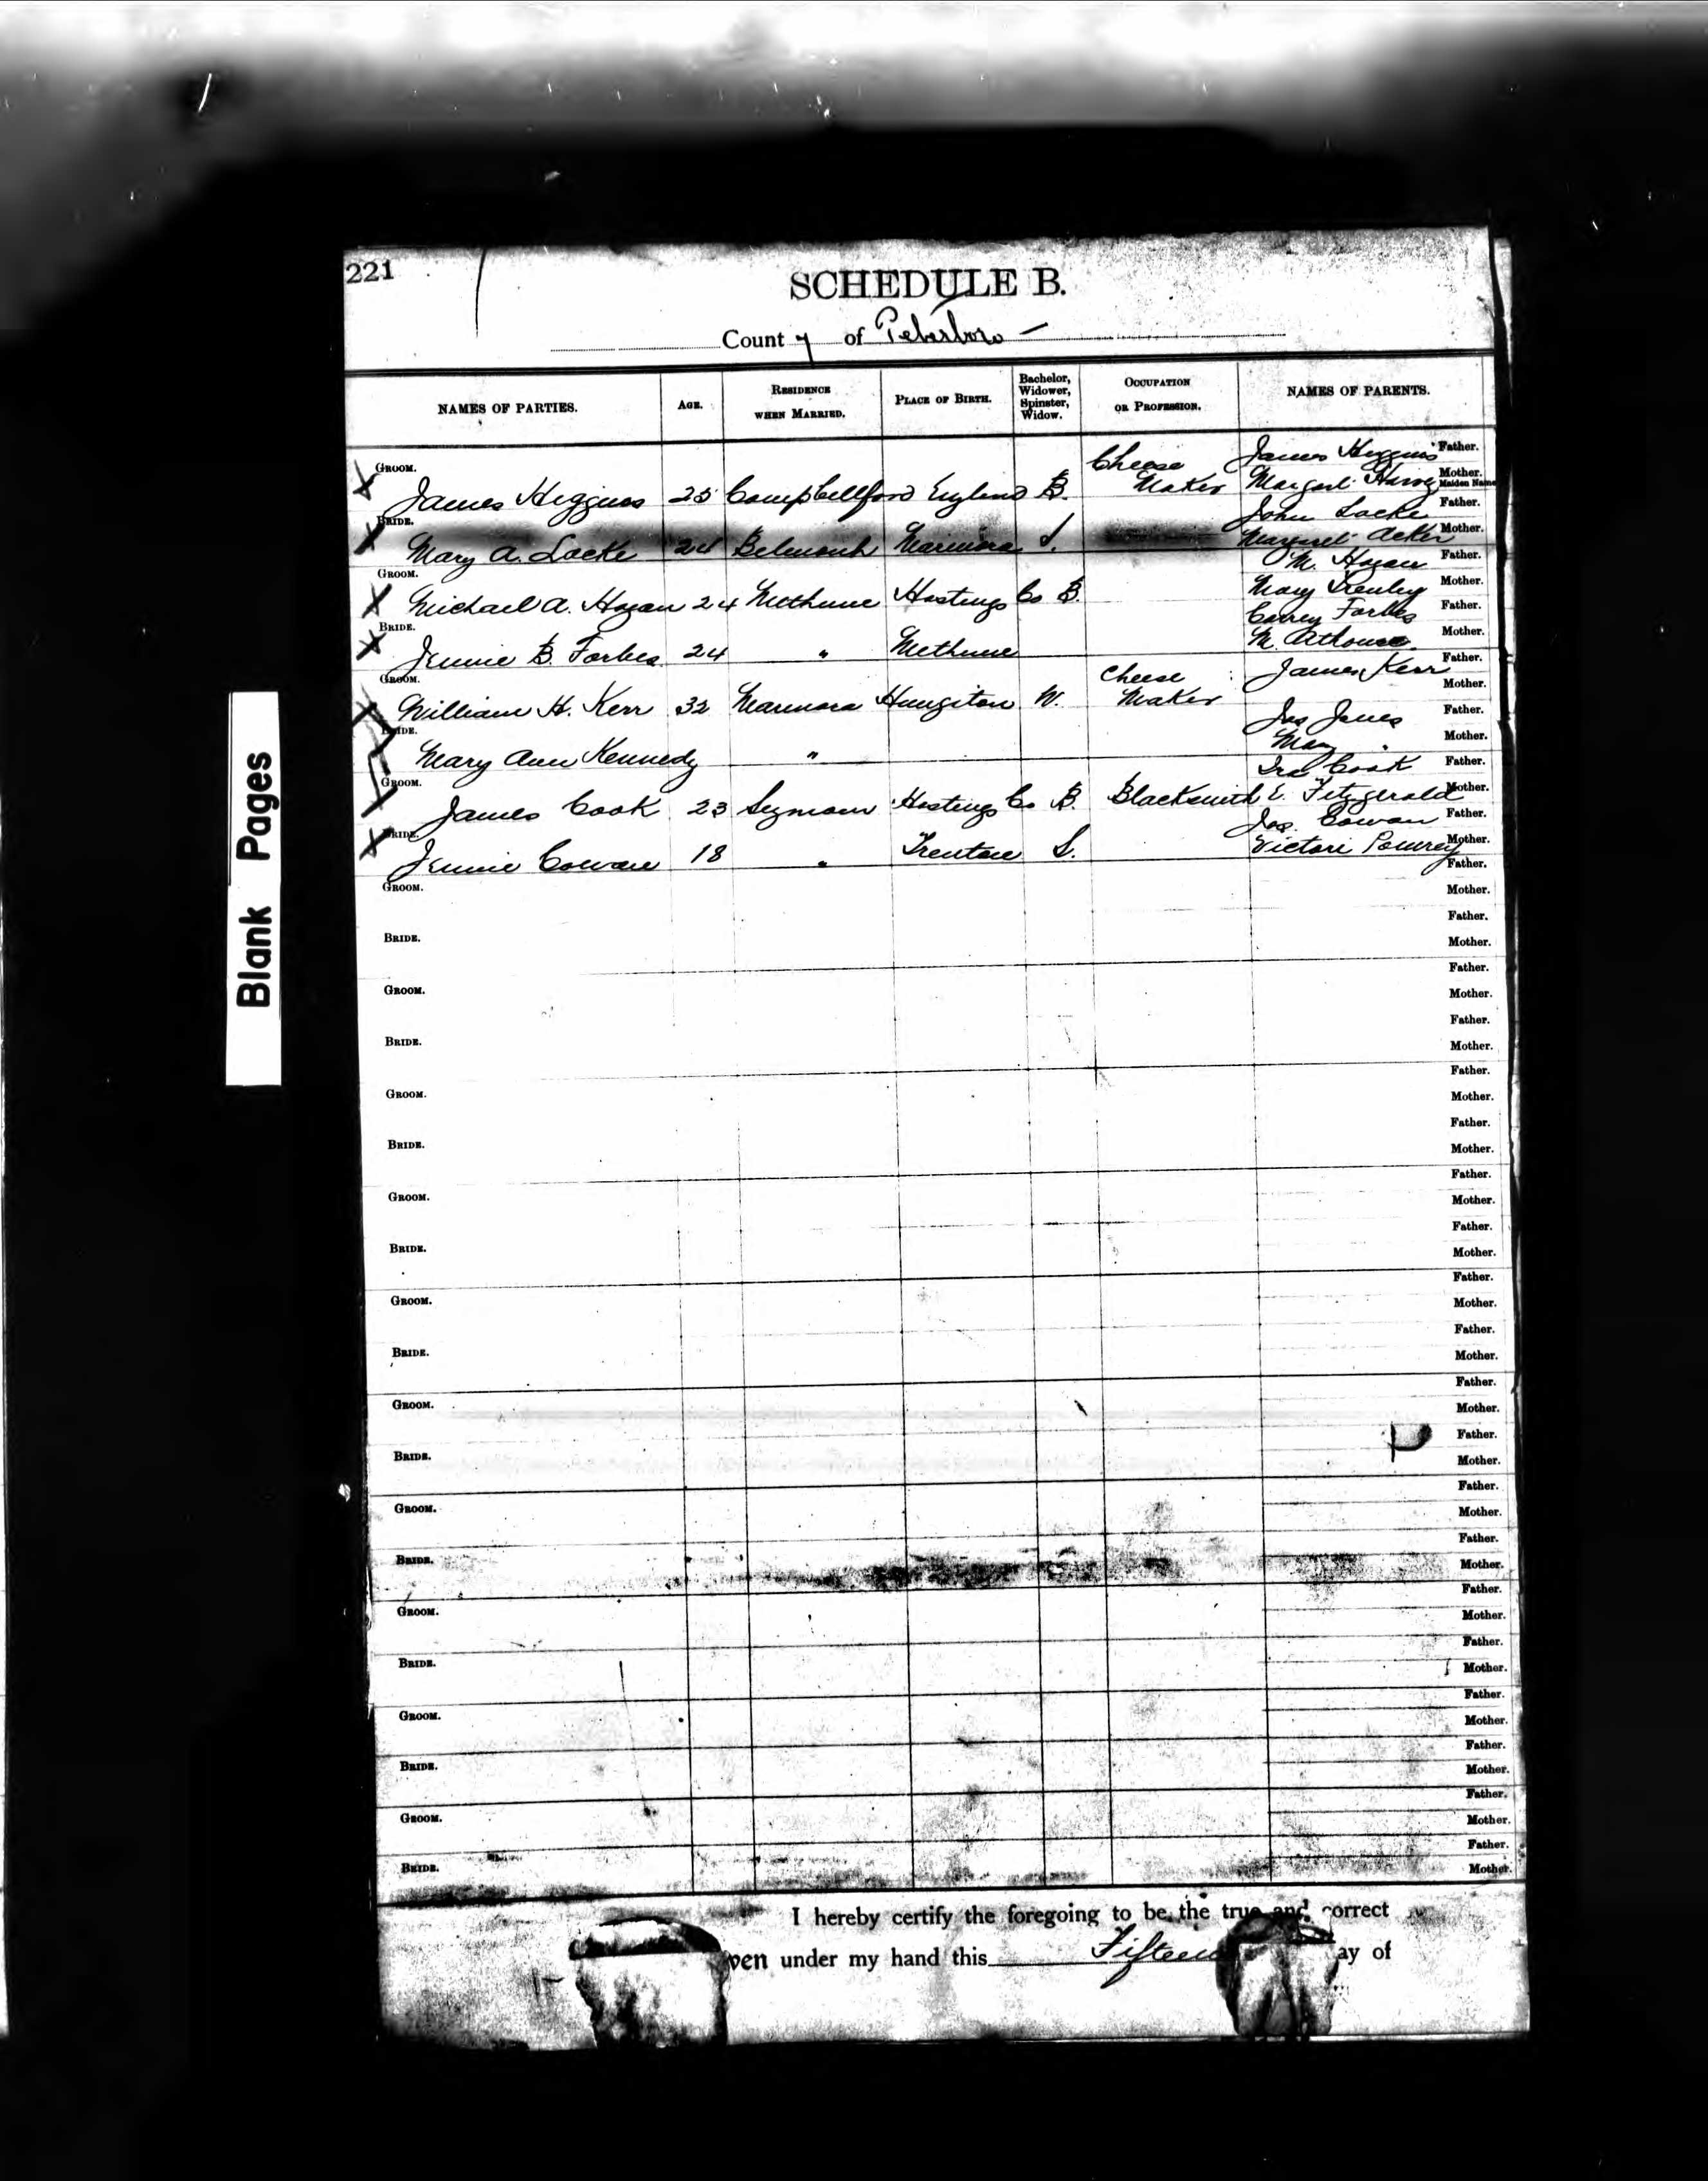 221
SCHEDULE B.
County of Peterboro
NAMES OF PARTIES. AGE. RESIDENCE WHEN MARRIED. PLACE OF BIRTH. Bachelor, Widower, Spinster, Widow. OCCUPATION OR PROFESSION. NAMES OF PARENTS.
James Higgins Father.
GROOM. James Higgins 25 Campbellford England B. Cheese Maker Margaret Harvey Mother. Maiden Name
John Locke Father.
BRIDE. Mary A. Locke 24 Belmont Marmora S. Margaret Acker Mother.
M. Hogan Father.
GROOM. Michael A. Hogan 24 Methuen Hastings Co B. Mary Mother.
Forbes Father.
BRIDE. Jennie B. Forbes 24 " Methuen M. Mother.
James Kerr Father.
GROOM. William H. Kerr 32 Marmora W. Cheese Maker Mother.
Jas Jones Father.
BRIDE. Mary Ann Kennedy " Mary " Mother.
Ira Cook Father.
GROOM. James Cook 23 Seymour Hastings Co B. Blacksmith E. Fitzgerald Mother.
Jas. Cowan Father.
BRIDE. Jennie Cowan 18 " Trenton S. Mother.
Father.
GROOM. Mother.
Father.
BRIDE. Mother.
Father.
GROOM. Mother.
Father.
BRIDE. Mother.
Father.
GROOM. Mother.
Father.
BRIDE. Mother.
Father.
GROOM. Mother.
Father.
BRIDE. Mother.
Father.
GROOM. Mother.
Father.
BRIDE. Mother.
Father.
GROOM. Mother.
Father.
BRIDE. Mother.
Father.
GROOM. Mother.
Father.
BRIDE. Mother.
Father.
GROOM. Mother.
Father.
BRIDE. Mother.
Father.
GROOM. Mother.
Father.
BRIDE. Mother.
Father.
GROOM. Mother.
Father.
BRIDE. Mother.
I hereby certify the foregoing to be the true and correct
ven under my hand this Fifteen ay of
Blank Pages